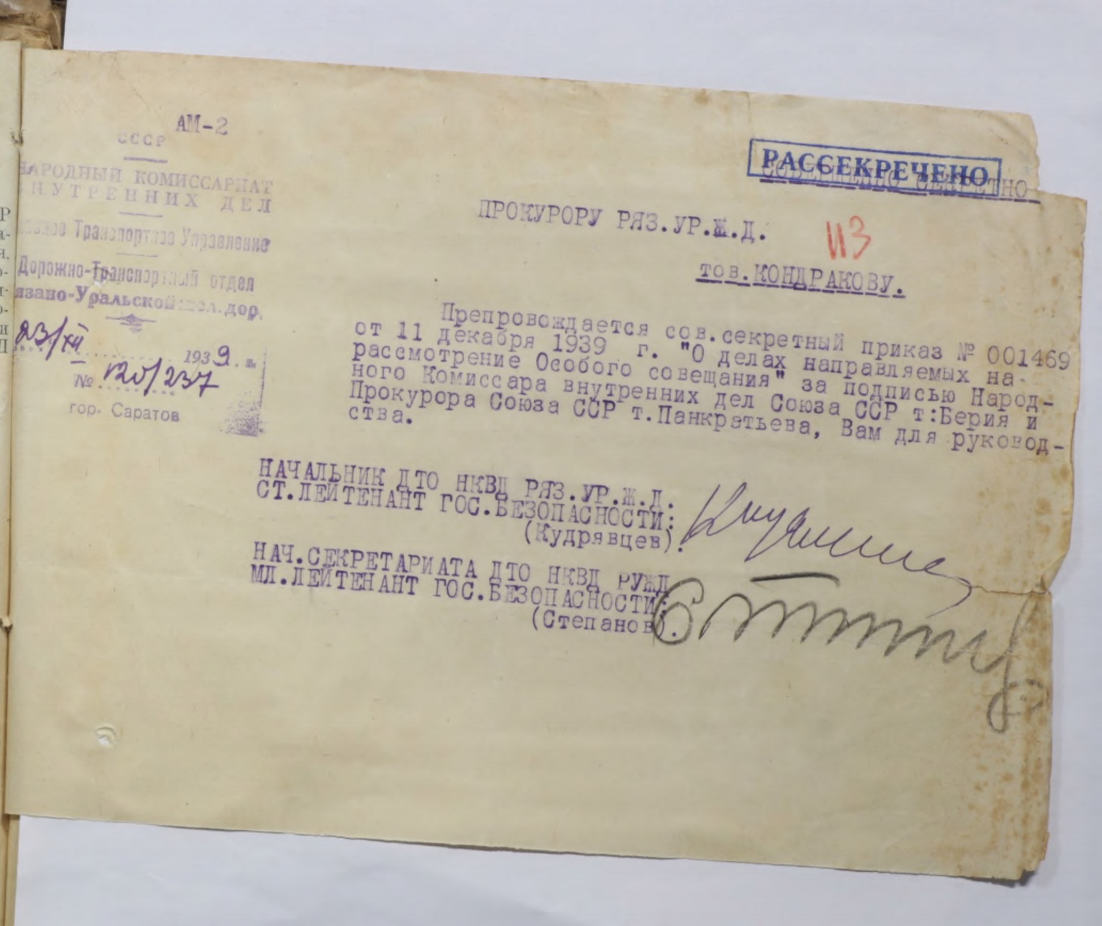 АМ-2
СССР
НАРОДНЫЙ КОМИССАРИАТ
ВНУТРЕННИХ ДЕЛ
Транспортное Управление
Дорожно-Транспортный отдел
язано-Уральской жел. дор.
23/XII 1939 г.
№ 120/237
гор. Саратов
РАССЕКРЕЧЕНО
СОВЕРШЕННО СЕКРЕТНО
ПРОКУРОРУ РЯЗ.УР.Ж.Д.
113
тов.КОНДРАКОВУ.
Препровождается сов.секретный приказ № 001469
от 11 декабря 1939 г. "О делах направляемых на-
рассмотрение Особого совещания" за подписью Народ-
ного Комиссара внутренних дел Союза ССР т:Берия и
Прокурора Союза ССР т.Панкратьева, Вам для руковод-
ства.
НАЧАЛЬНИК ДТО НКВД РЯЗ.УР.Ж.Д.
СТ.ЛЕЙТЕНАНТ ГОС.БЕЗОПАСНОСТИ:
(Кудрявцев).
НАЧ.СЕКРЕТАРИАТА ДТО НКВД РУЖД
МЛ.ЛЕЙТЕНАНТ ГОС.БЕЗОПАСНОСТИ:
(Степанов).